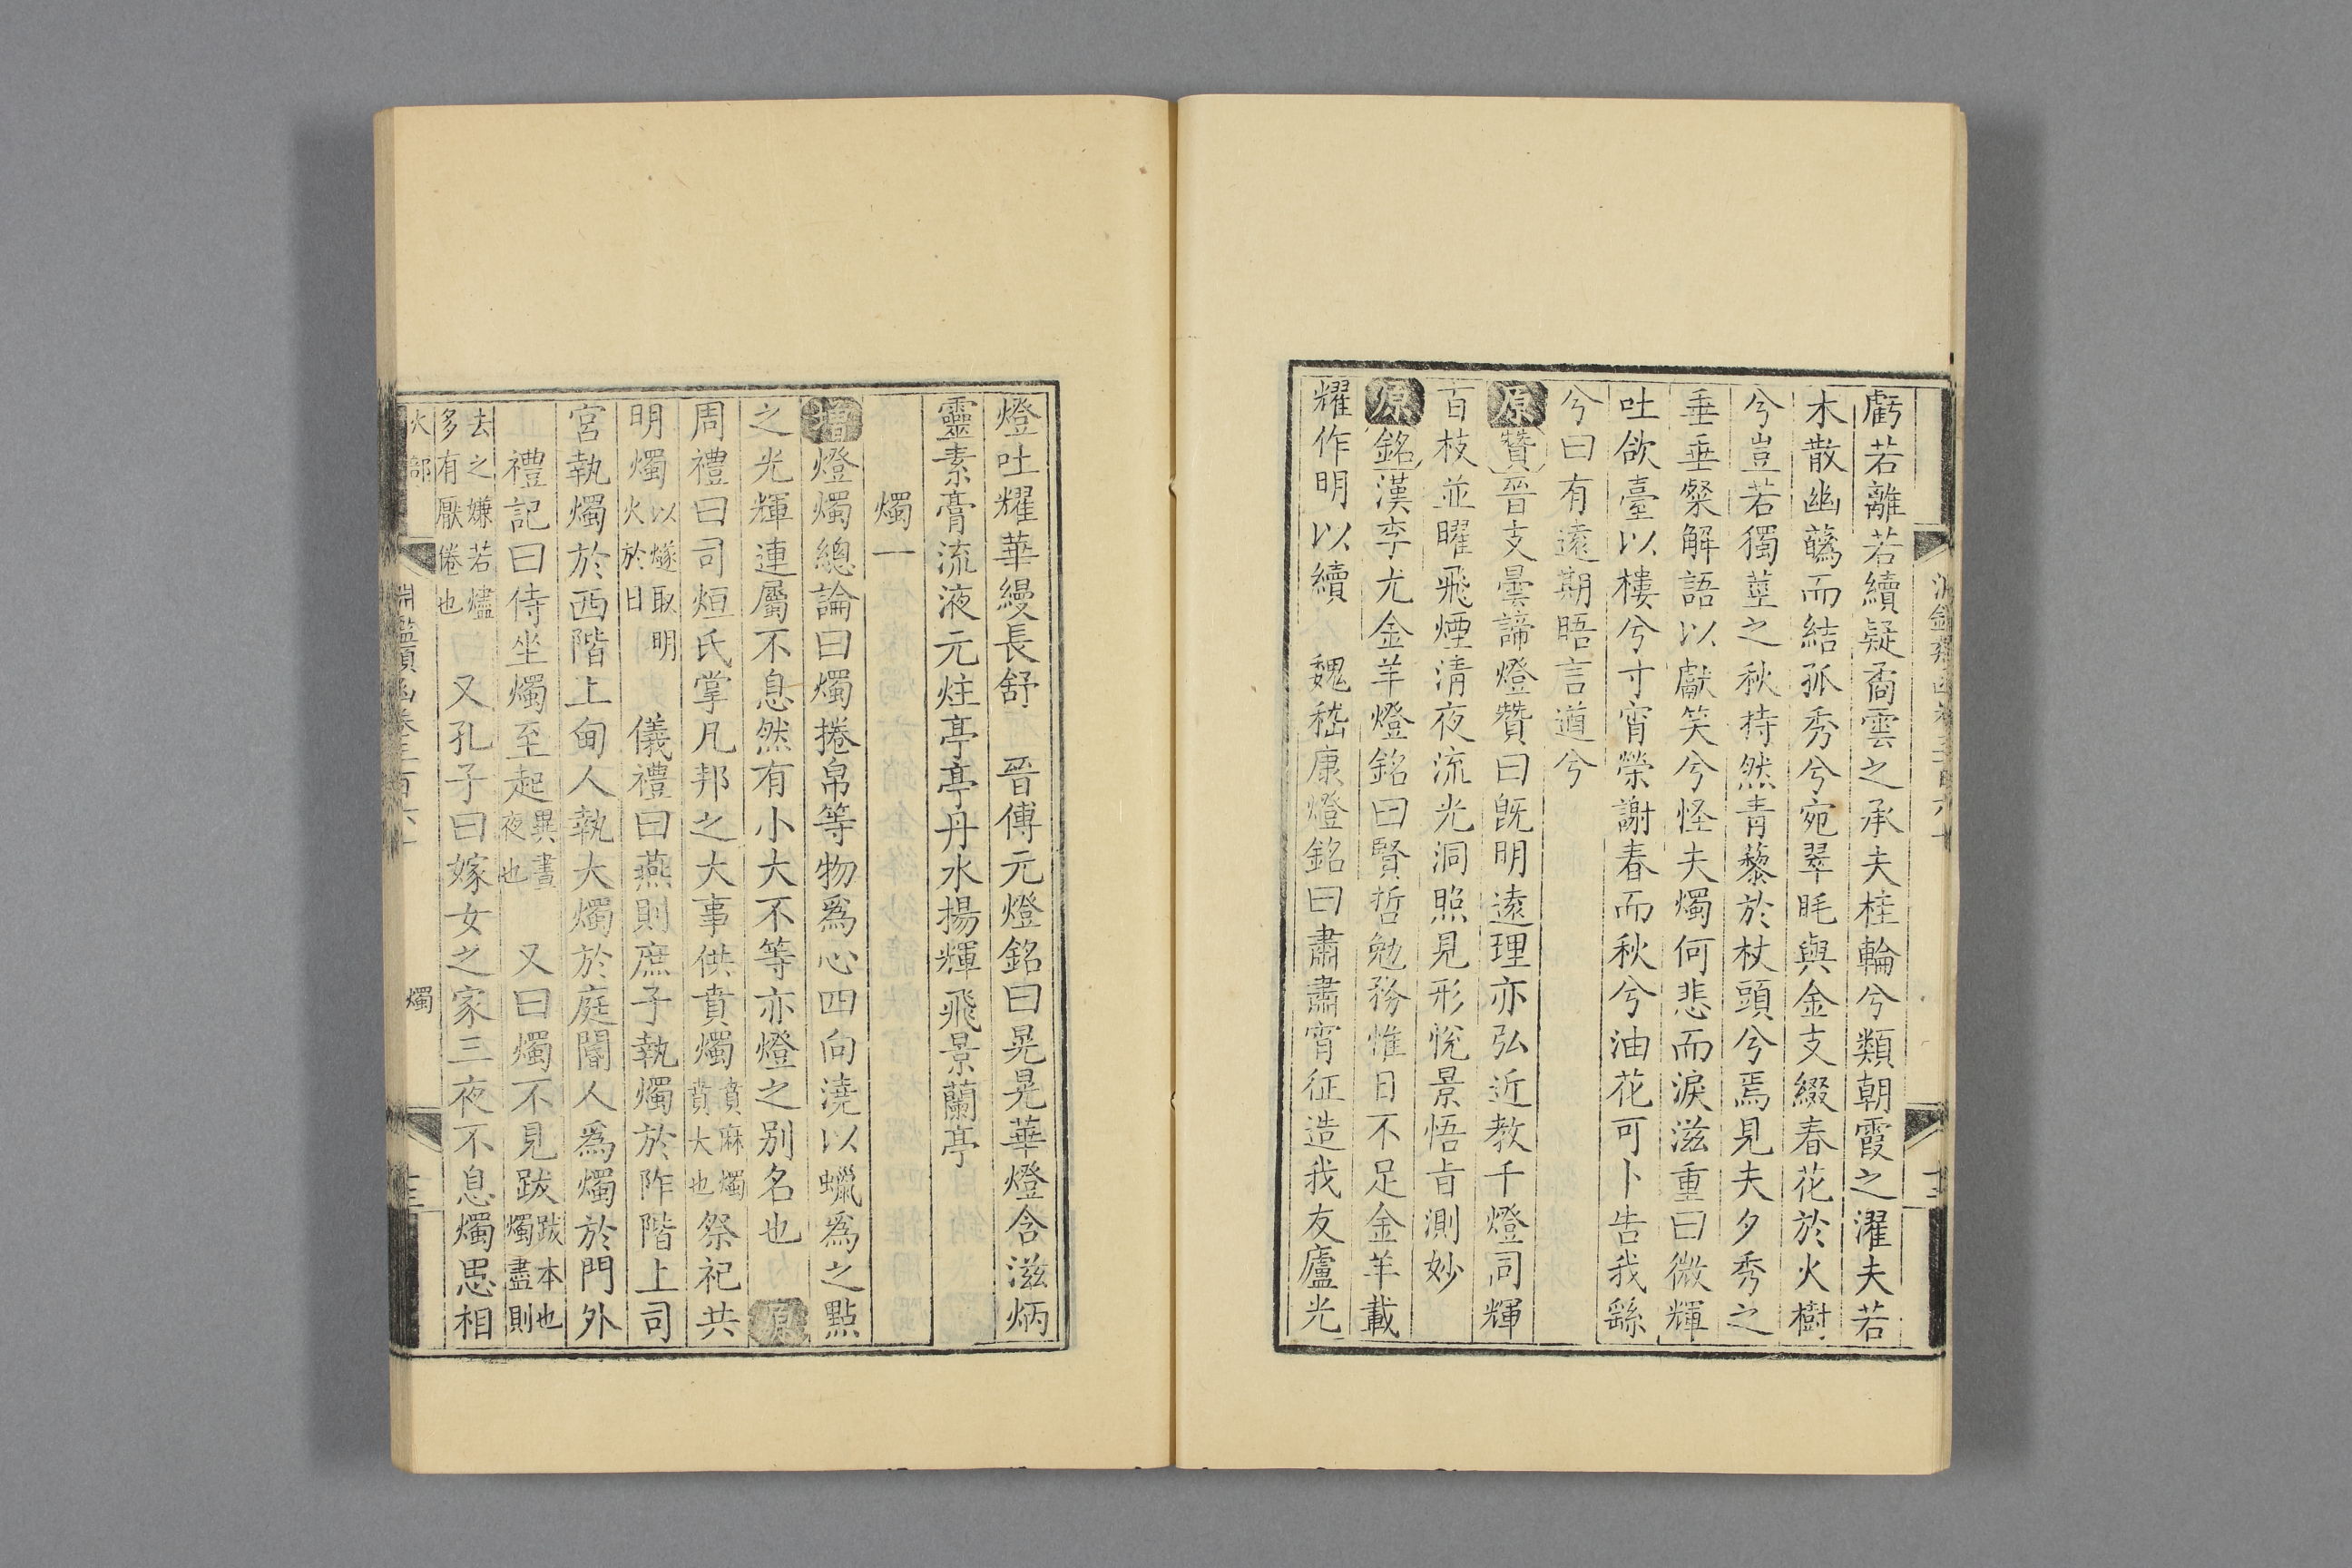 虧若離若續疑矞雲之承夫桂輪兮類朝霞之濯夫若
木散幽蘤而結孤秀兮宛翠眊與金支綴春花於火樹
兮豈若獨莖之秋持然青藜於杖頭兮焉見夫夕秀之
垂垂粲解語以獻笑兮怪夫燭何悲而淚滋重曰微輝
吐欲臺以樓兮寸宵榮謝春而秋兮油花可卜告我繇
兮曰有遠期晤言遒兮
原贊晉支曇諦燈贊曰旣明遠理亦弘近教千燈同輝
百枝並曜飛煙清夜流光洞照見形悅景悟旨測妙
原銘漢李尤金羊燈銘曰賢哲勉務惟日不足金羊載
耀作明以續 魏嵇康燈銘曰肅肅宵征造我友廬光
燈吐耀華縵長舒 晉傅元燈銘曰晃晃華燈含滋炳
靈素膏流液元炷亭亭丹水揚輝飛景蘭亭
燭一
增燈燭總論曰燭捲帛等物爲心四向澆以蠟爲之點
之光輝連屬不息然有小大不等亦燈之别名也 原
周禮曰司烜氏掌凡邦之大事供蕡燭蕡麻燭蕡大也祭祀共
明燭以燧取明火於日 儀禮曰燕則庶子執燭於阼階上司
宮執燭於西階上甸人執大燭於庭閽人爲燭於門外
禮記曰侍坐燭至起異晝夜也 又曰燭不見跋跋本也燭盡則
去之嫌若燼多有厭倦也 又孔子曰嫁女之家三夜不息燭思相
火部 淵鑑類函卷三百六十 燭 十三